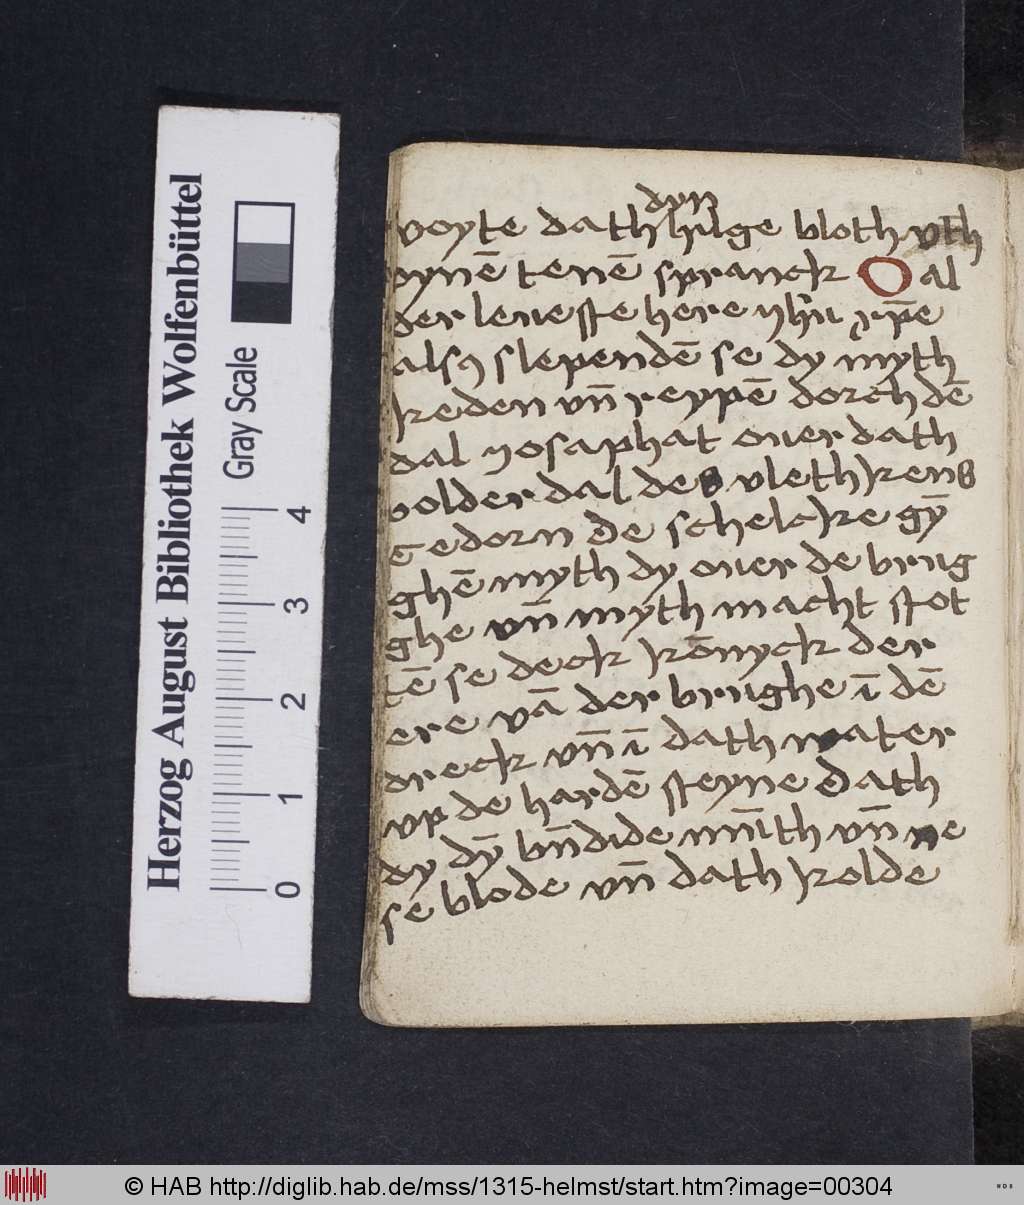 dyn
voyte dath hilge bloth vth
dynē tenē spranck O al
der leueste here yhū xp̄e
alsꝯ slependē se dy myth
keden vn̄ reypē dorch dē
dal yosaphat ouer dath
polder dal des vleth krens
gedorn de schelcke gȳ
ghē myth dy ouer de brug
ghe vn̄ myth macht stot
tē se deck kōnyck der
ere vā der brughe ī dē
dreck vn̄ ī dath water
vp de hardē steyne Dath
dy dȳ bn̄dide mūth vn̄ ne
se blode vn̄ dath kolde
Herzog August Bibliothek Wolfenbüttel
Gray Scale
0 1 2 3 4
© HAB http://diglib.hab.de/mss/1315-helmst/start.htm?image=00304
HAB